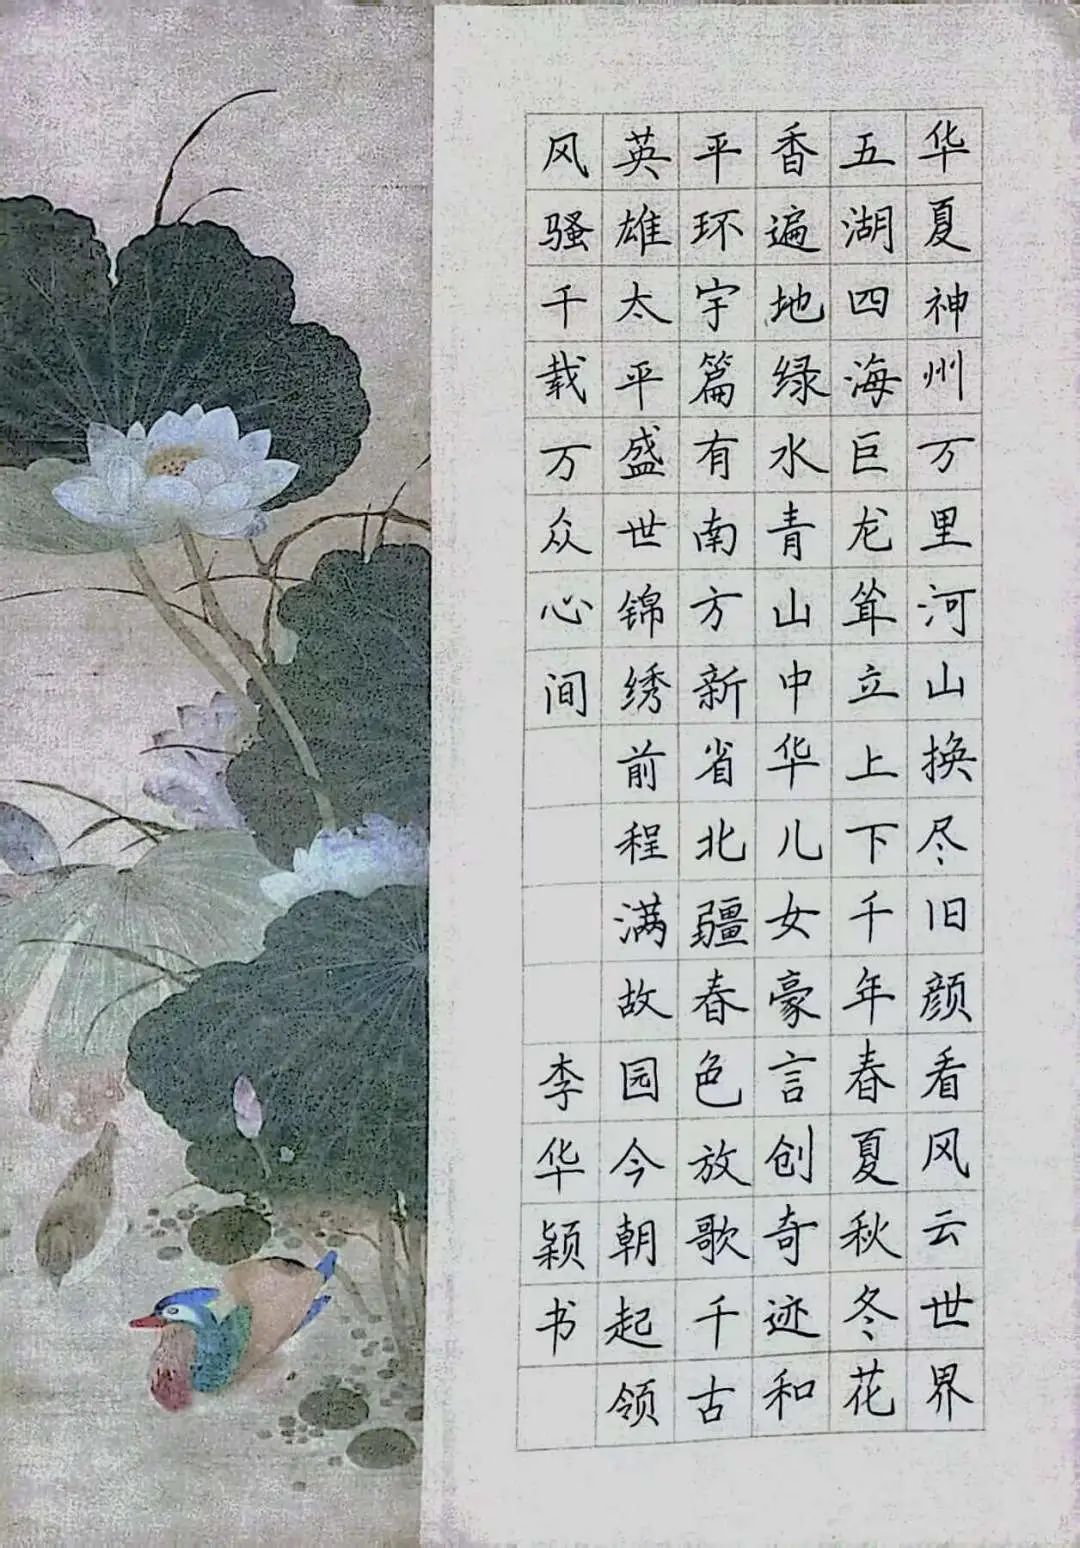 华夏神州万里河山换尽旧颜看风云世界
五湖四海巨龙耸立上下千年春夏秋冬花
香遍地绿水青山中华儿女豪言创奇迹和
平环宇篇有南方新省北疆春色放歌千古
英雄太平盛世锦绣前程满故园今朝起领
风骚千载万众心间
李华颖书